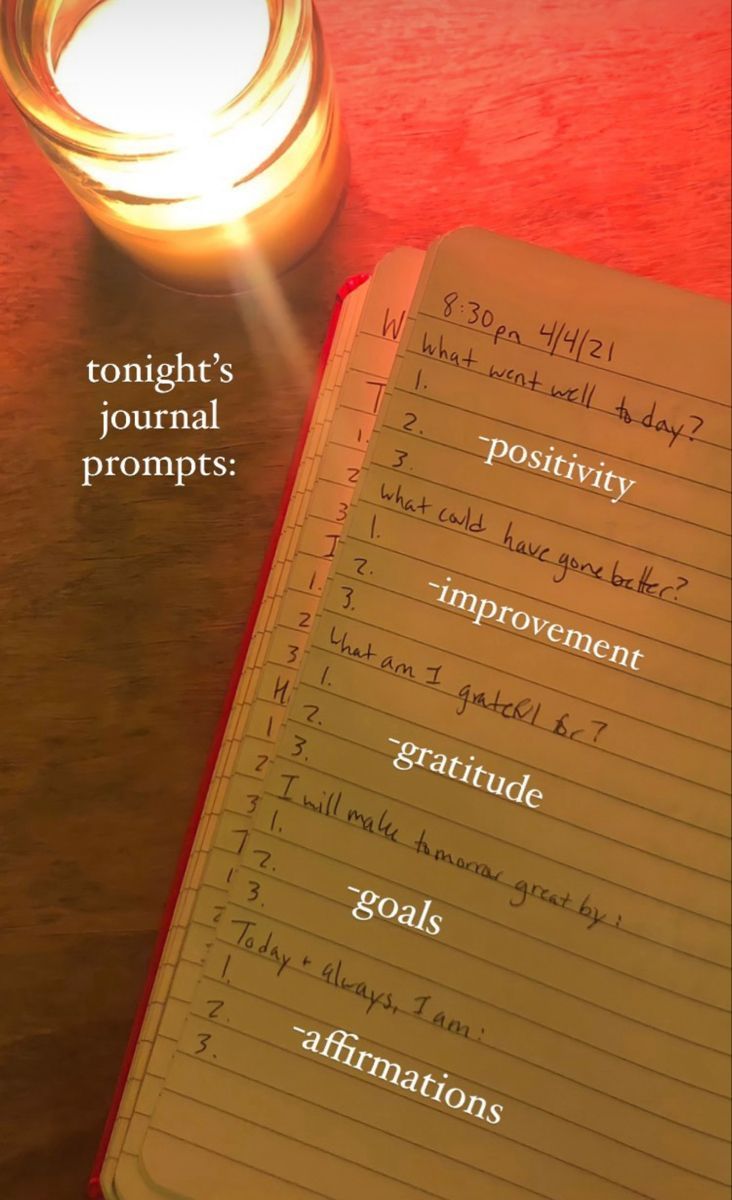 tonight's
journal
prompts:
8:30pm 4/4/21
What went well today?
1.
2.
-positivity
3.
What could have gone better?
1.
2.
-improvement
3.
What am I grateful for?
1.
2.
-gratitude
3.
I will make tomorrow great by:
1.
2.
-goals
3.
Today + always, I am:
1.
2.
-affirmations
3.
W
T
1.
2
3
I
1.
2
3
H
1
2
3
T
1
2